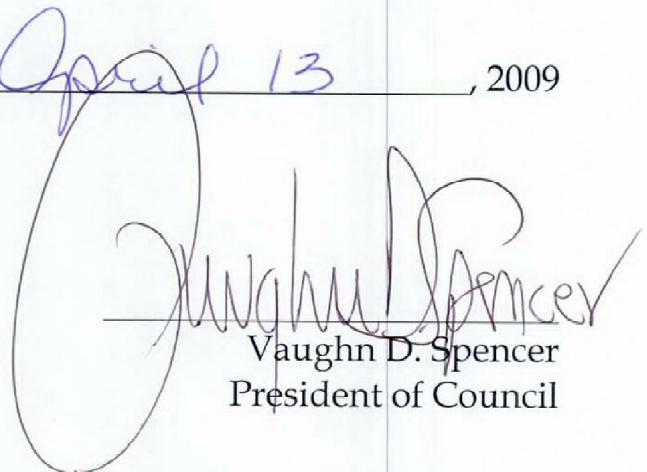 April 13, 2009
Vaughn D. Spencer
Vaughn D. Spencer
President of Council